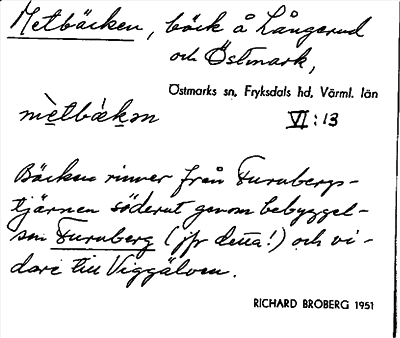 Metbäcken, bäck å Långerud
och Östmark,
Östmarks sn, Fryksdals hd, Värml. län
mètbækən VI:13
Bäcken rinner från Furubergs-
tjärnen söderut genom bebyggel-
sen Furuberg (jfr detta!) och vi-
dare till Viggälven.
RICHARD BROBERG 1951